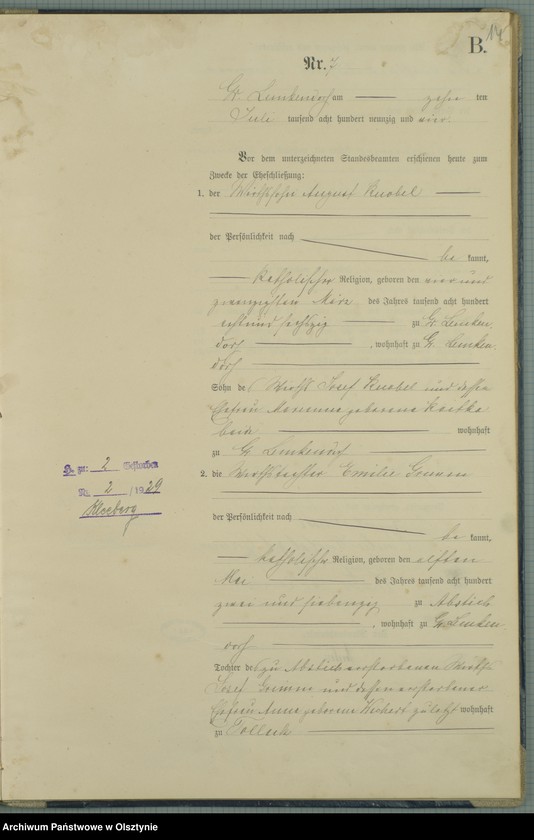 B.
14
Nr. 7
Gr. Lemkendorf am zehn ten
Juli tausend acht hundert neunzig und vier
Vor dem unterzeichneten Standesbeamten erschienen heute zum
Zwecke der Eheschließung:
1. der Wirthssohn August Knobel
der Persönlichkeit nach
be kannt,
katholischer Religion, geboren den vier und
zwanzigsten März des Jahres tausend acht hundert
acht und sechzig zu Gr. Lemken
dorf , wohnhaft zu Gr. Lemken
dorf
Sohn des Wirths Josef Knobel und dessen
Ehefrau Marianna geborene
beide wohnhaft
zu Gr. Lemkendorf
2. die Wirthstochter Emilie Grimm
der Persönlichkeit nach
be kannt,
katholischer Religion, geboren den elften
Mai des Jahres tausend acht hundert
zwei und siebenzig zu Abstich
, wohnhaft zu Gr. Lemken
dorf
Tochter des zu Abstich verstorbenen Wirths
Josef Grimm und dessen verstorbener
Ehefrau Anna geborene zuletzt wohnhaft
zu Tollack
H. zu: 2 Gestorben
Nr. 2 / 1929
Kleeberg
Archiwum Państwowe w Olsztynie